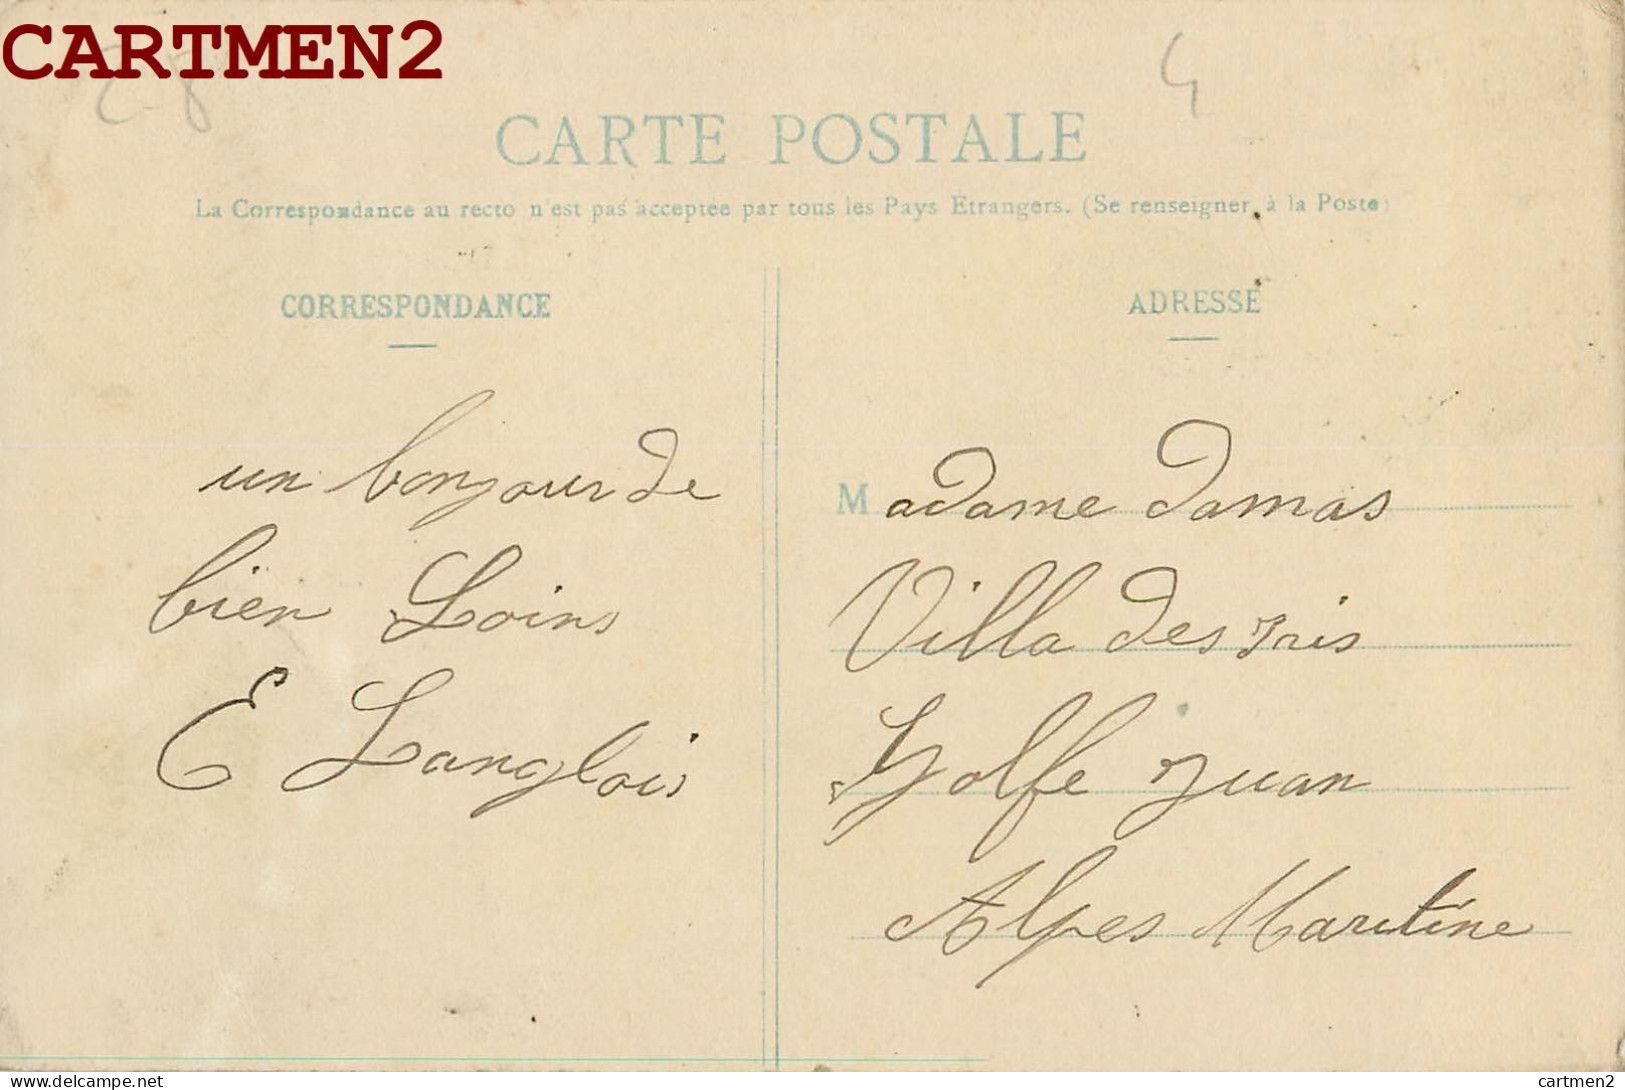 CARTMEN2
4
CARTE POSTALE
La Correspondance au recto n'est pas acceptée par tous les Pays Etrangers. (Se renseigner à la Poste)
CORRESPONDANCE
un bonjour de
bien Loins
E Langlois
ADRESSE
Madame Damas
Villa des Iris
Golfe Juan
Alpes Maritine
www.delcampe.net
cartmen2